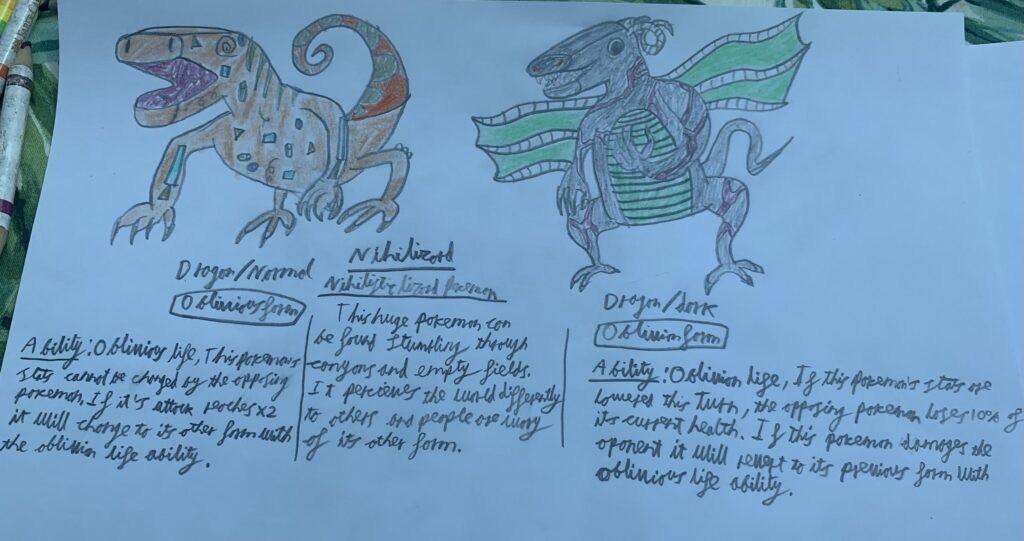 Nihilizord
Nihilistic lizord pokemon
Dragon/Normal
Oblivious form
Ability: Oblivious life, This pokemons
stats cannot be changed by the opposing
pokemon. If it's attack reaches x2
it will change to its other form with
the oblivion life ability.
This huge pokemon can
be found stumbling through
canyons and empty fields.
It percieves the world differently
to others and people are wary
of its other form.
Dragon/dark
Oblivion form
Ability: Oblivion life, If this pokemon's stats are
lowered this turn, the opposing pokemon loses 10% of
its current health. If this pokemon damages the
oponent it will revert to its previous form with
Oblivious life ability.